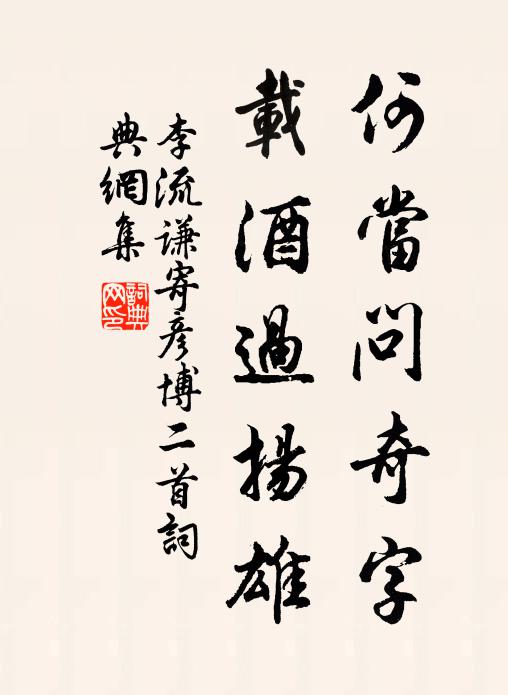 何當問奇字
載酒過揚雄
李流謙寄彦博二首詞
典網集
詞典
网印